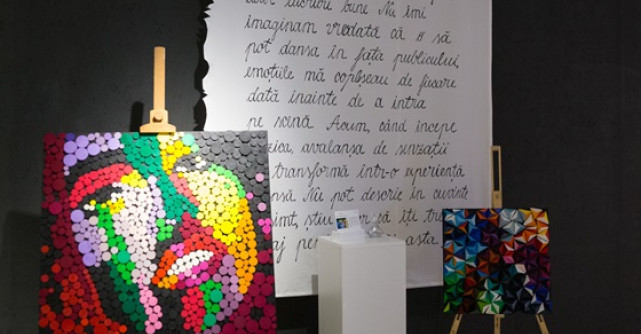 lucruri bune Nu îmi
imaginam vreodată că o să
pot dansa în fața publicului,
emoțiile mă copleșeau de fiecare
dată înainte de a intra
pe scenă. Acum, când începe
avalanșa de senzații
transformă într-o experiență
Nu pot descrie în cuvinte
să îți
asta